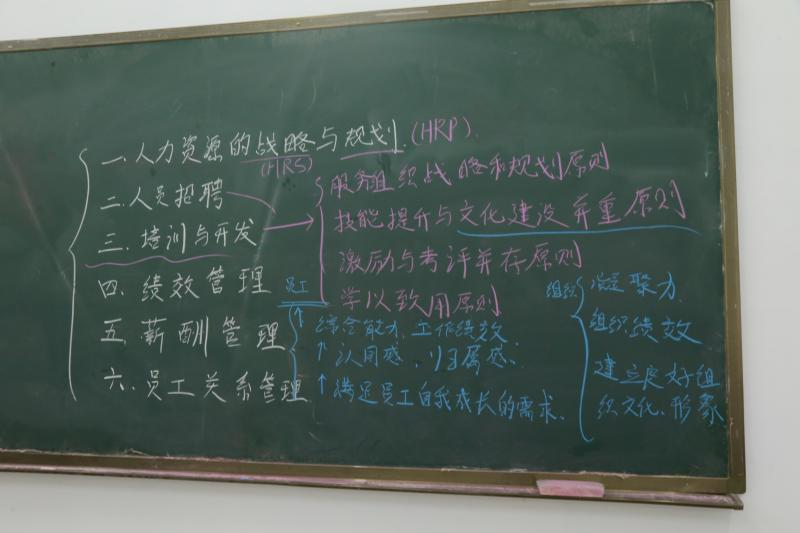 一.人力资源的战略与规划.(HRP).
(HRS)
二.人员招聘
三.培训与开发
四.绩效管理
五.薪酬管理
六.员工关系管理
服务组织战略和规划原则
技能提升与文化建设并重原则
激励与考评并存原则
学以致用原则
员工
↑综合能力、工作绩效
↑认同感、归属感、
↑满足员工自我成长的需求、
组织
凝聚力、
组织绩效
建立良好组
织文化、形象